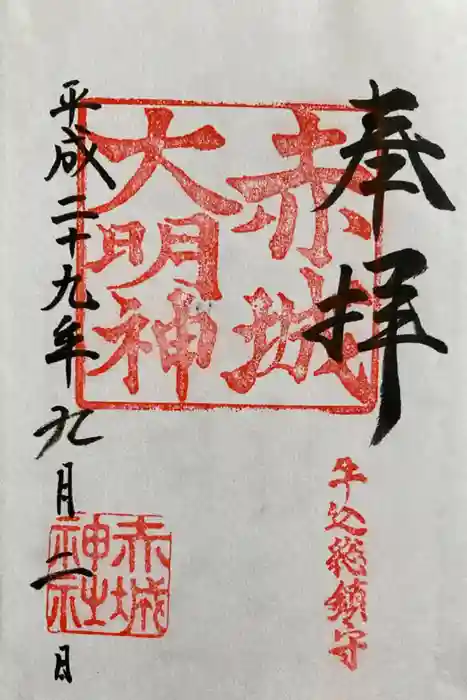 奉拝
牛込総鎮守
赤城
大明神
平成二十九年九月二日
赤城
神社